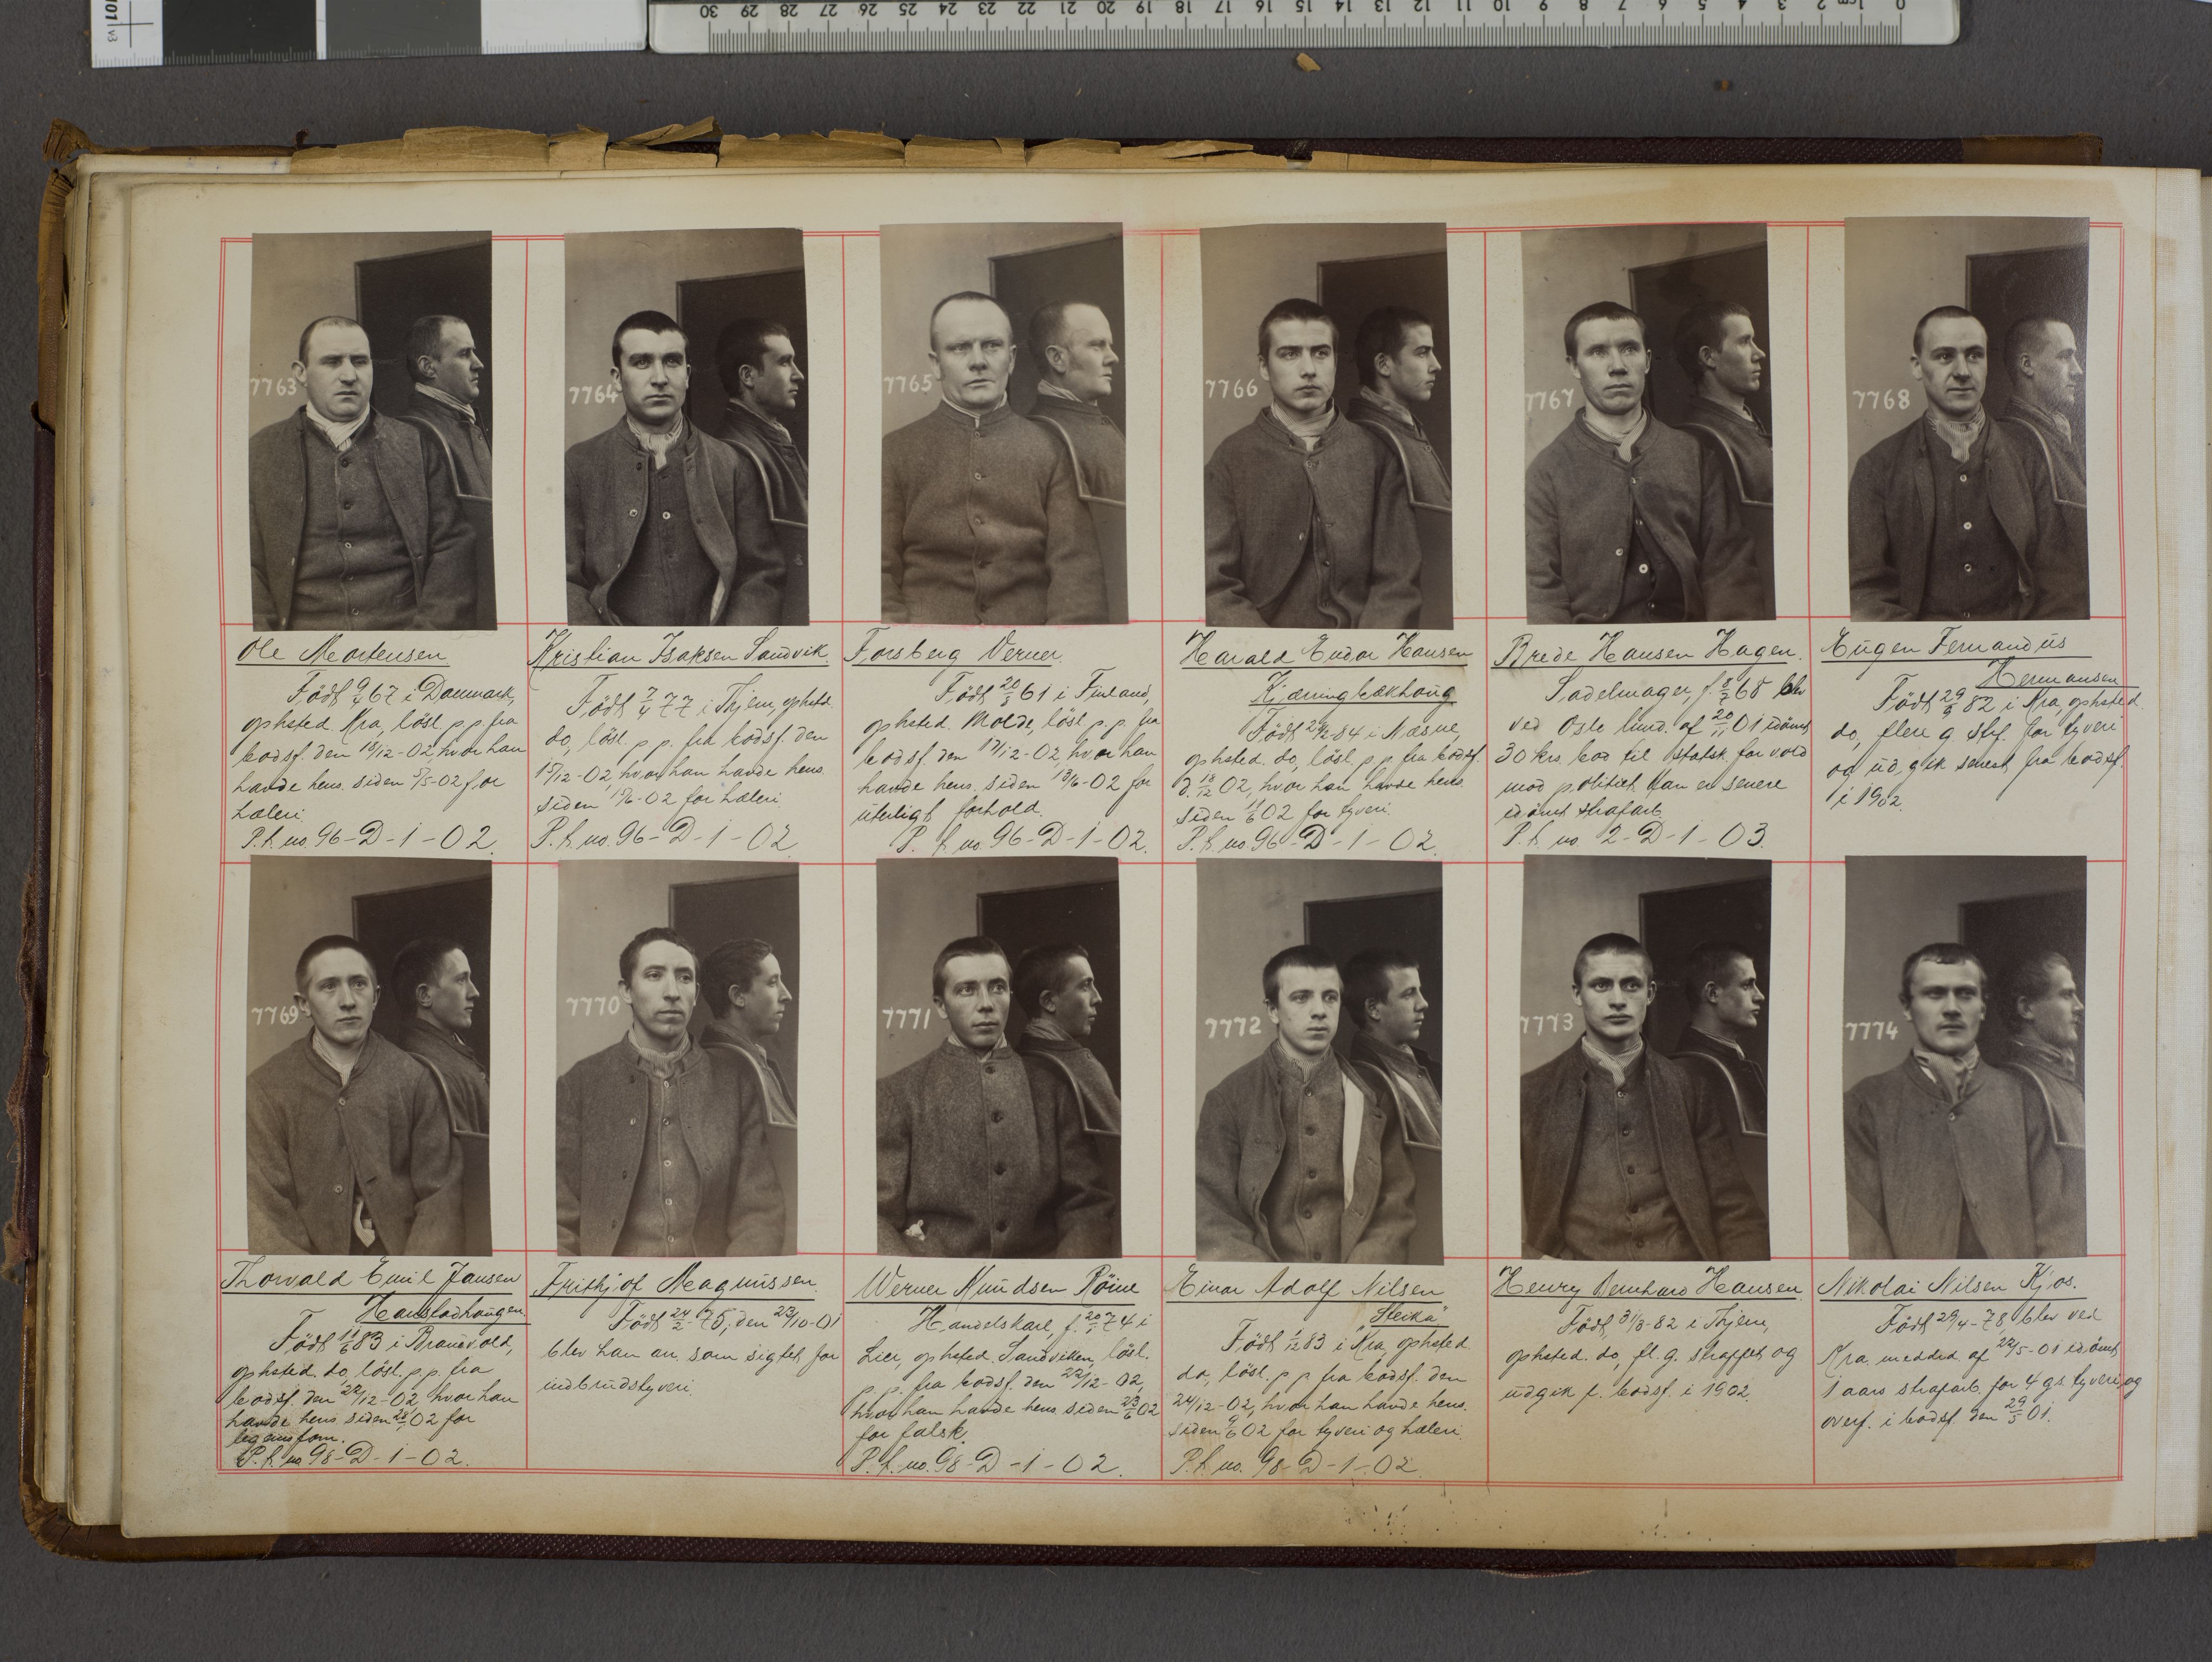 30 29 28 27 26 25 24 23 22 21 20 19 18 17 16 15 14 13 12 11 10 9 8 7 6 5 4 3 2 1cm 0
7763
Ole Mortensen
Født 9/4 67 i Danmark,
ophsted. Kra, løsl. p. p fra
bodsf. den 18/12-02, hvor han
havde hens. siden 5/5-02 for
hæleri.
P. f. no. 96-D-1-02.
7764
Kristian Isaksen Sandvik.
Født 7/4 77 i Thjem, ophsted.
do, løsl. p p. fra bodsf. den
15/12-02, hvor han havde hens.
siden 15/6-02 for hæleri.
P. f. no. 96-D-1-02
7765
Forsberg Verner.
Født 20/3 61 i Finland,
ophsted. Molde, løsl. p. p. fra
bodsf. den 17/12-02, hvor han
havde hens. siden 13/6-02 for
uterligt forhold.
P. f. no. 96-D-1-02.
7766
Harald Eudor Hansen
Kjærringbækhaug
Født 24/2-84 i Næsne,
ophsted. do, løsl. p. p. fra bodsf.
d. 18/12 02, hvor han havde hens.
siden 11/6 02 for tyveri.
P. f. no. 96-D-1-02.
7767
Brede Hansen Hagen.
Sadelmager, f. 8/2 68 blev
ved Oslo lund. af 20/11 01 idømt
30 krs. bod til statsk. for vold
mod politiet. Han er senere
idømt strafarb.
P. f. no. 2-D-1-03.
7768
Eugen Fernandus
Hermansen
Født 29/9 82 i Kra, ophsted.
do, flere g. stf. for tyveri
og udgik senest fra bodsf.
i 1902.
7769
Thorvald Emil Jansen
Hanstadhaugen.
Født 11/6 83 i Brandvold,
ophsted. do, løsl. p. p. fra
bodsf. den 22/12-02 hvor han
havde hens. siden 02 for
legemsforn.
P. f. no 98-D-1-02.
7770
Frithjof Magnussen.
Født 24/2-75, den 23/10-01
blev han an. som sigtet for
indbrudstyveri.
7771
Werner Knudsen Röine
Handelskarl, f. 20/1 74 i
Lier, ophsted. Sandviken, løsl.
p. p. fra bodsf. den 22/12-02,
hvor han havde hens. siden 23/6 02
for falsk.
P. f. no. 98-D-1-02.
7772
Einar Adolf Nilsen
"Steika"
Født 1/12 83 i Kra, ophsted.
do, løsl. p p fra bodsf. den
24/12-02, hvor han havde hens.
siden 9/6 02 for tyveri og hæleri.
P. f. no. 98-D-1-02.
7773
Henry Bernhard Hansen.
Født 31/3-82 i Thjem,
ophsted. do, fl. g. straffet og
udgik f. bodsf. i 1902.
7774
Nikolai Nilsen Kjos.
Født 29/4-78, blev ved
Kra. meddsd. af 22/5-01 idømt
1 aars strafarb. for 4 gs. tyveri, og
overf. i bodsf. den 29/5 01.